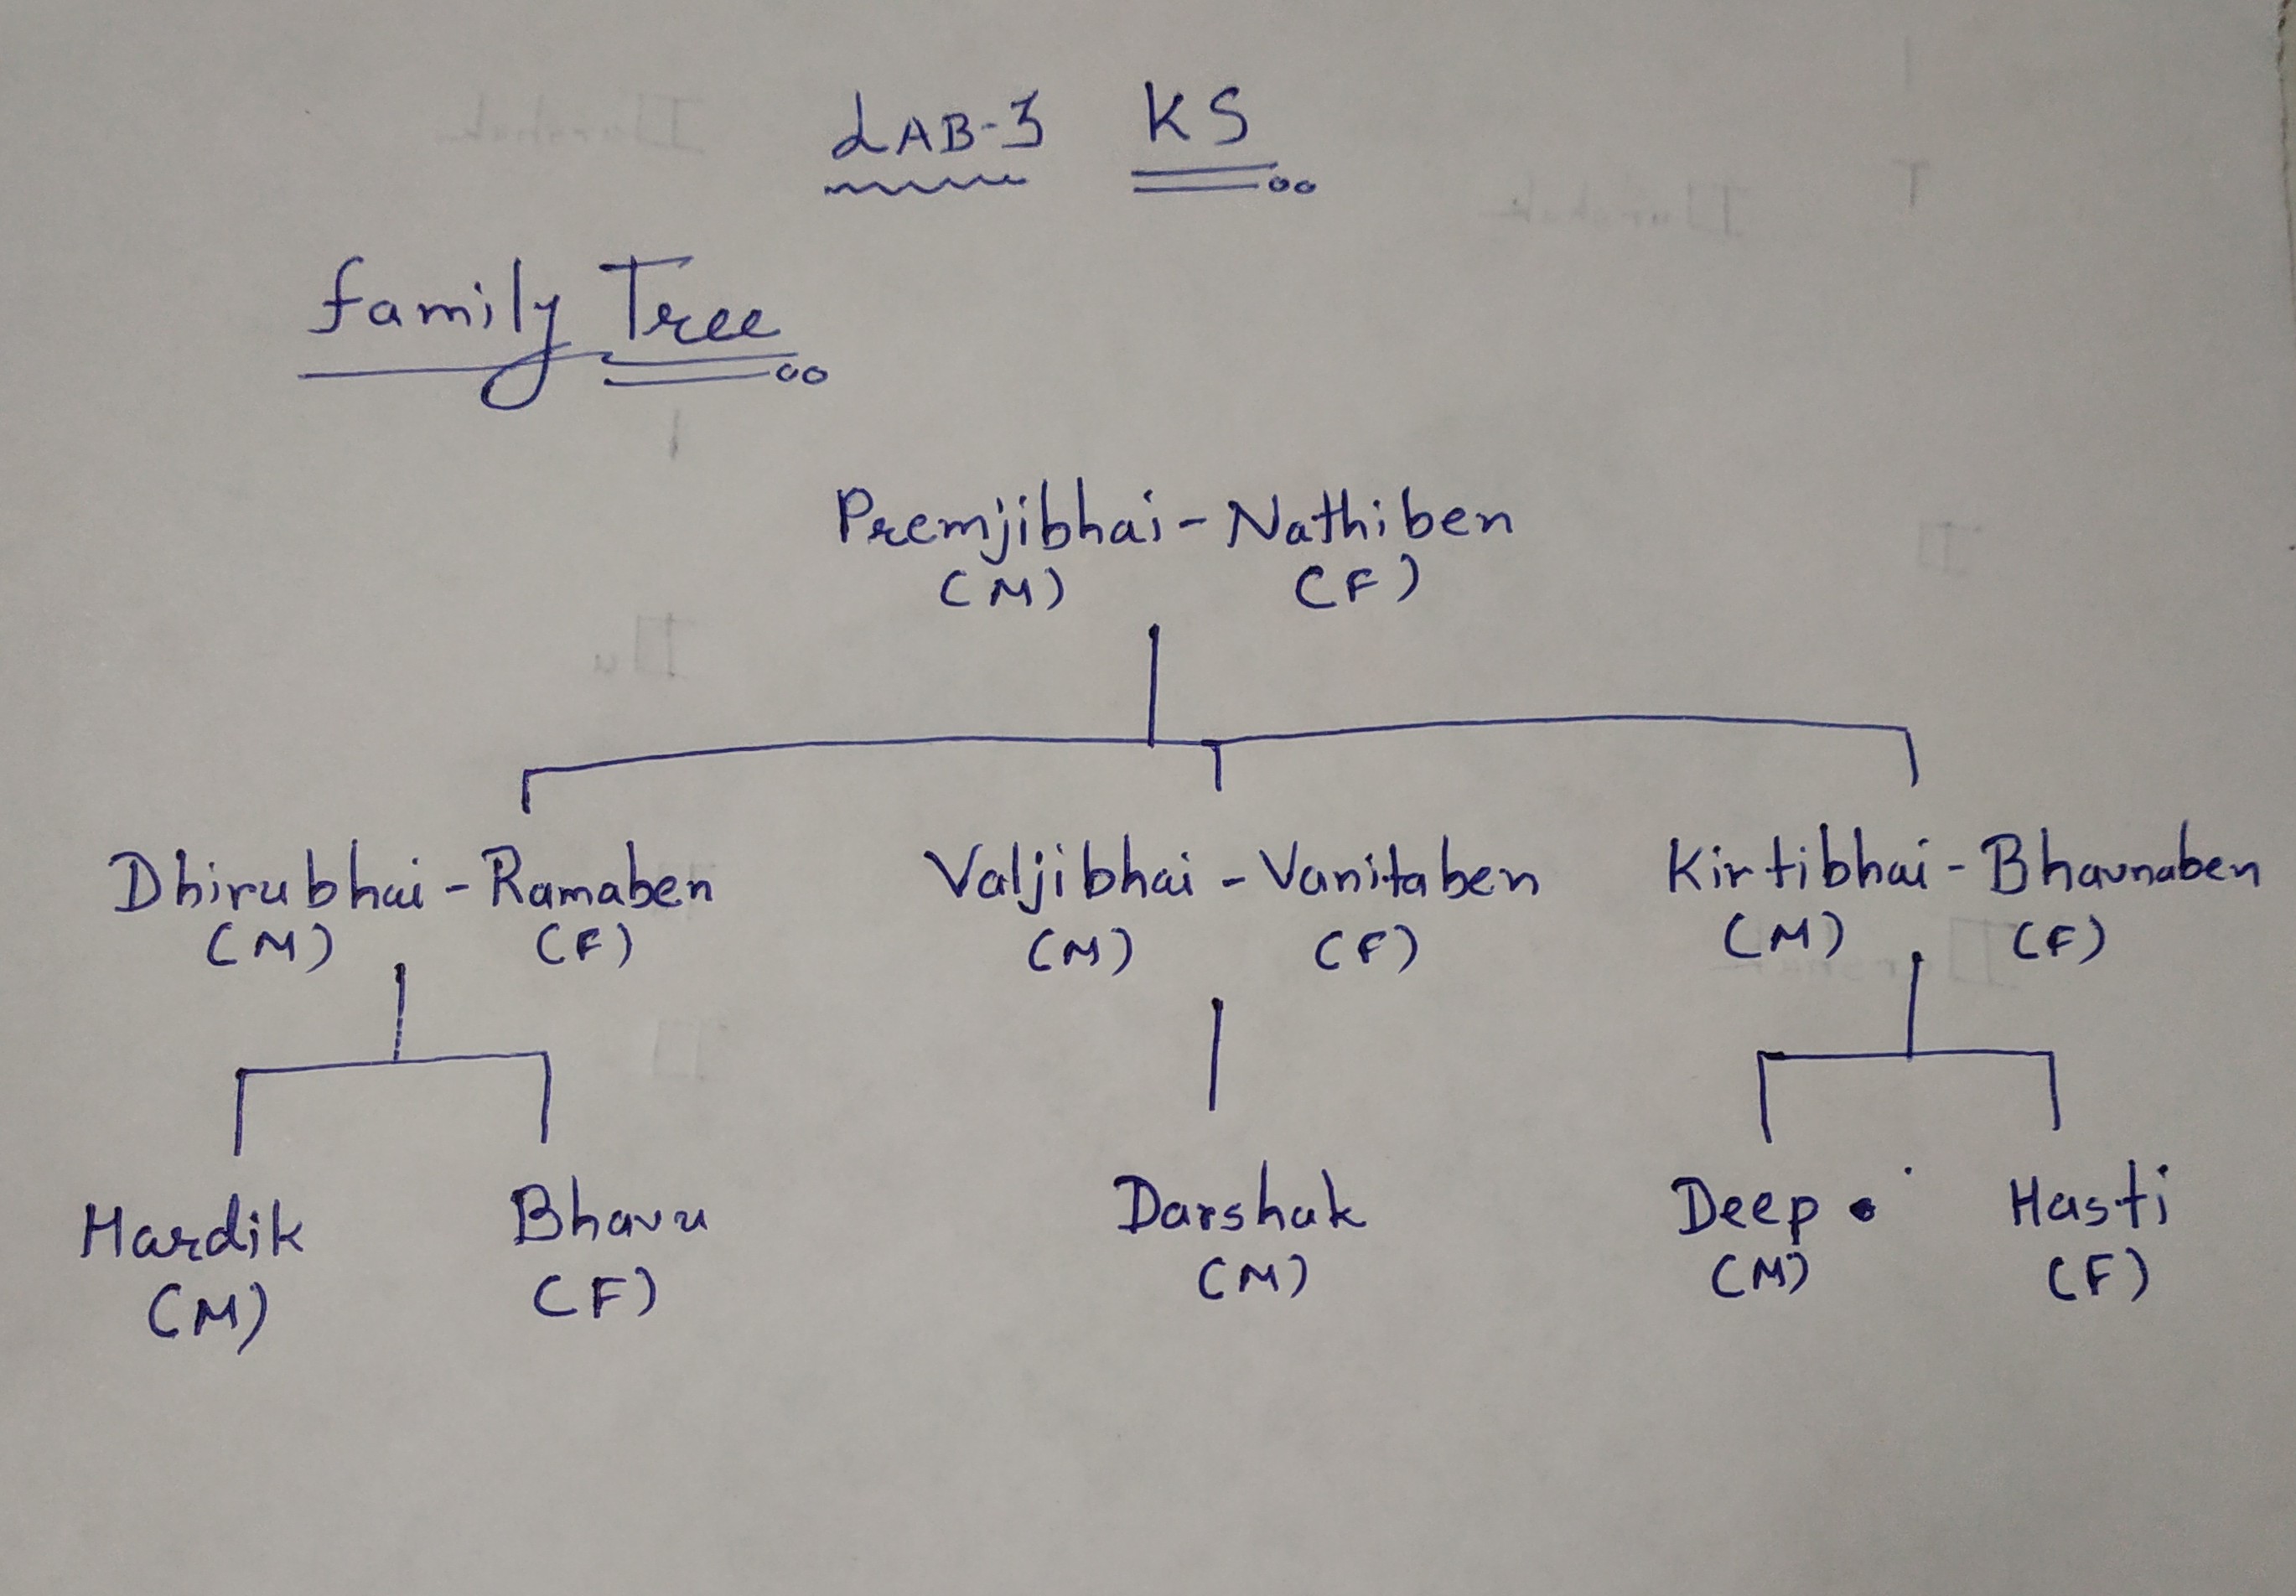 LAB-3 KS
Family Tree
Premjibhai - Nathiben
(M) (F)
Dhirubhai - Ramaben Valjibhai - Vanitaben Kirtibhai - Bhavnaben
(M) (F) (M) (F) (M) (F)
Hardik Bhavu Darshak Deep Hasti
(M) (F) (M) (M) (F)